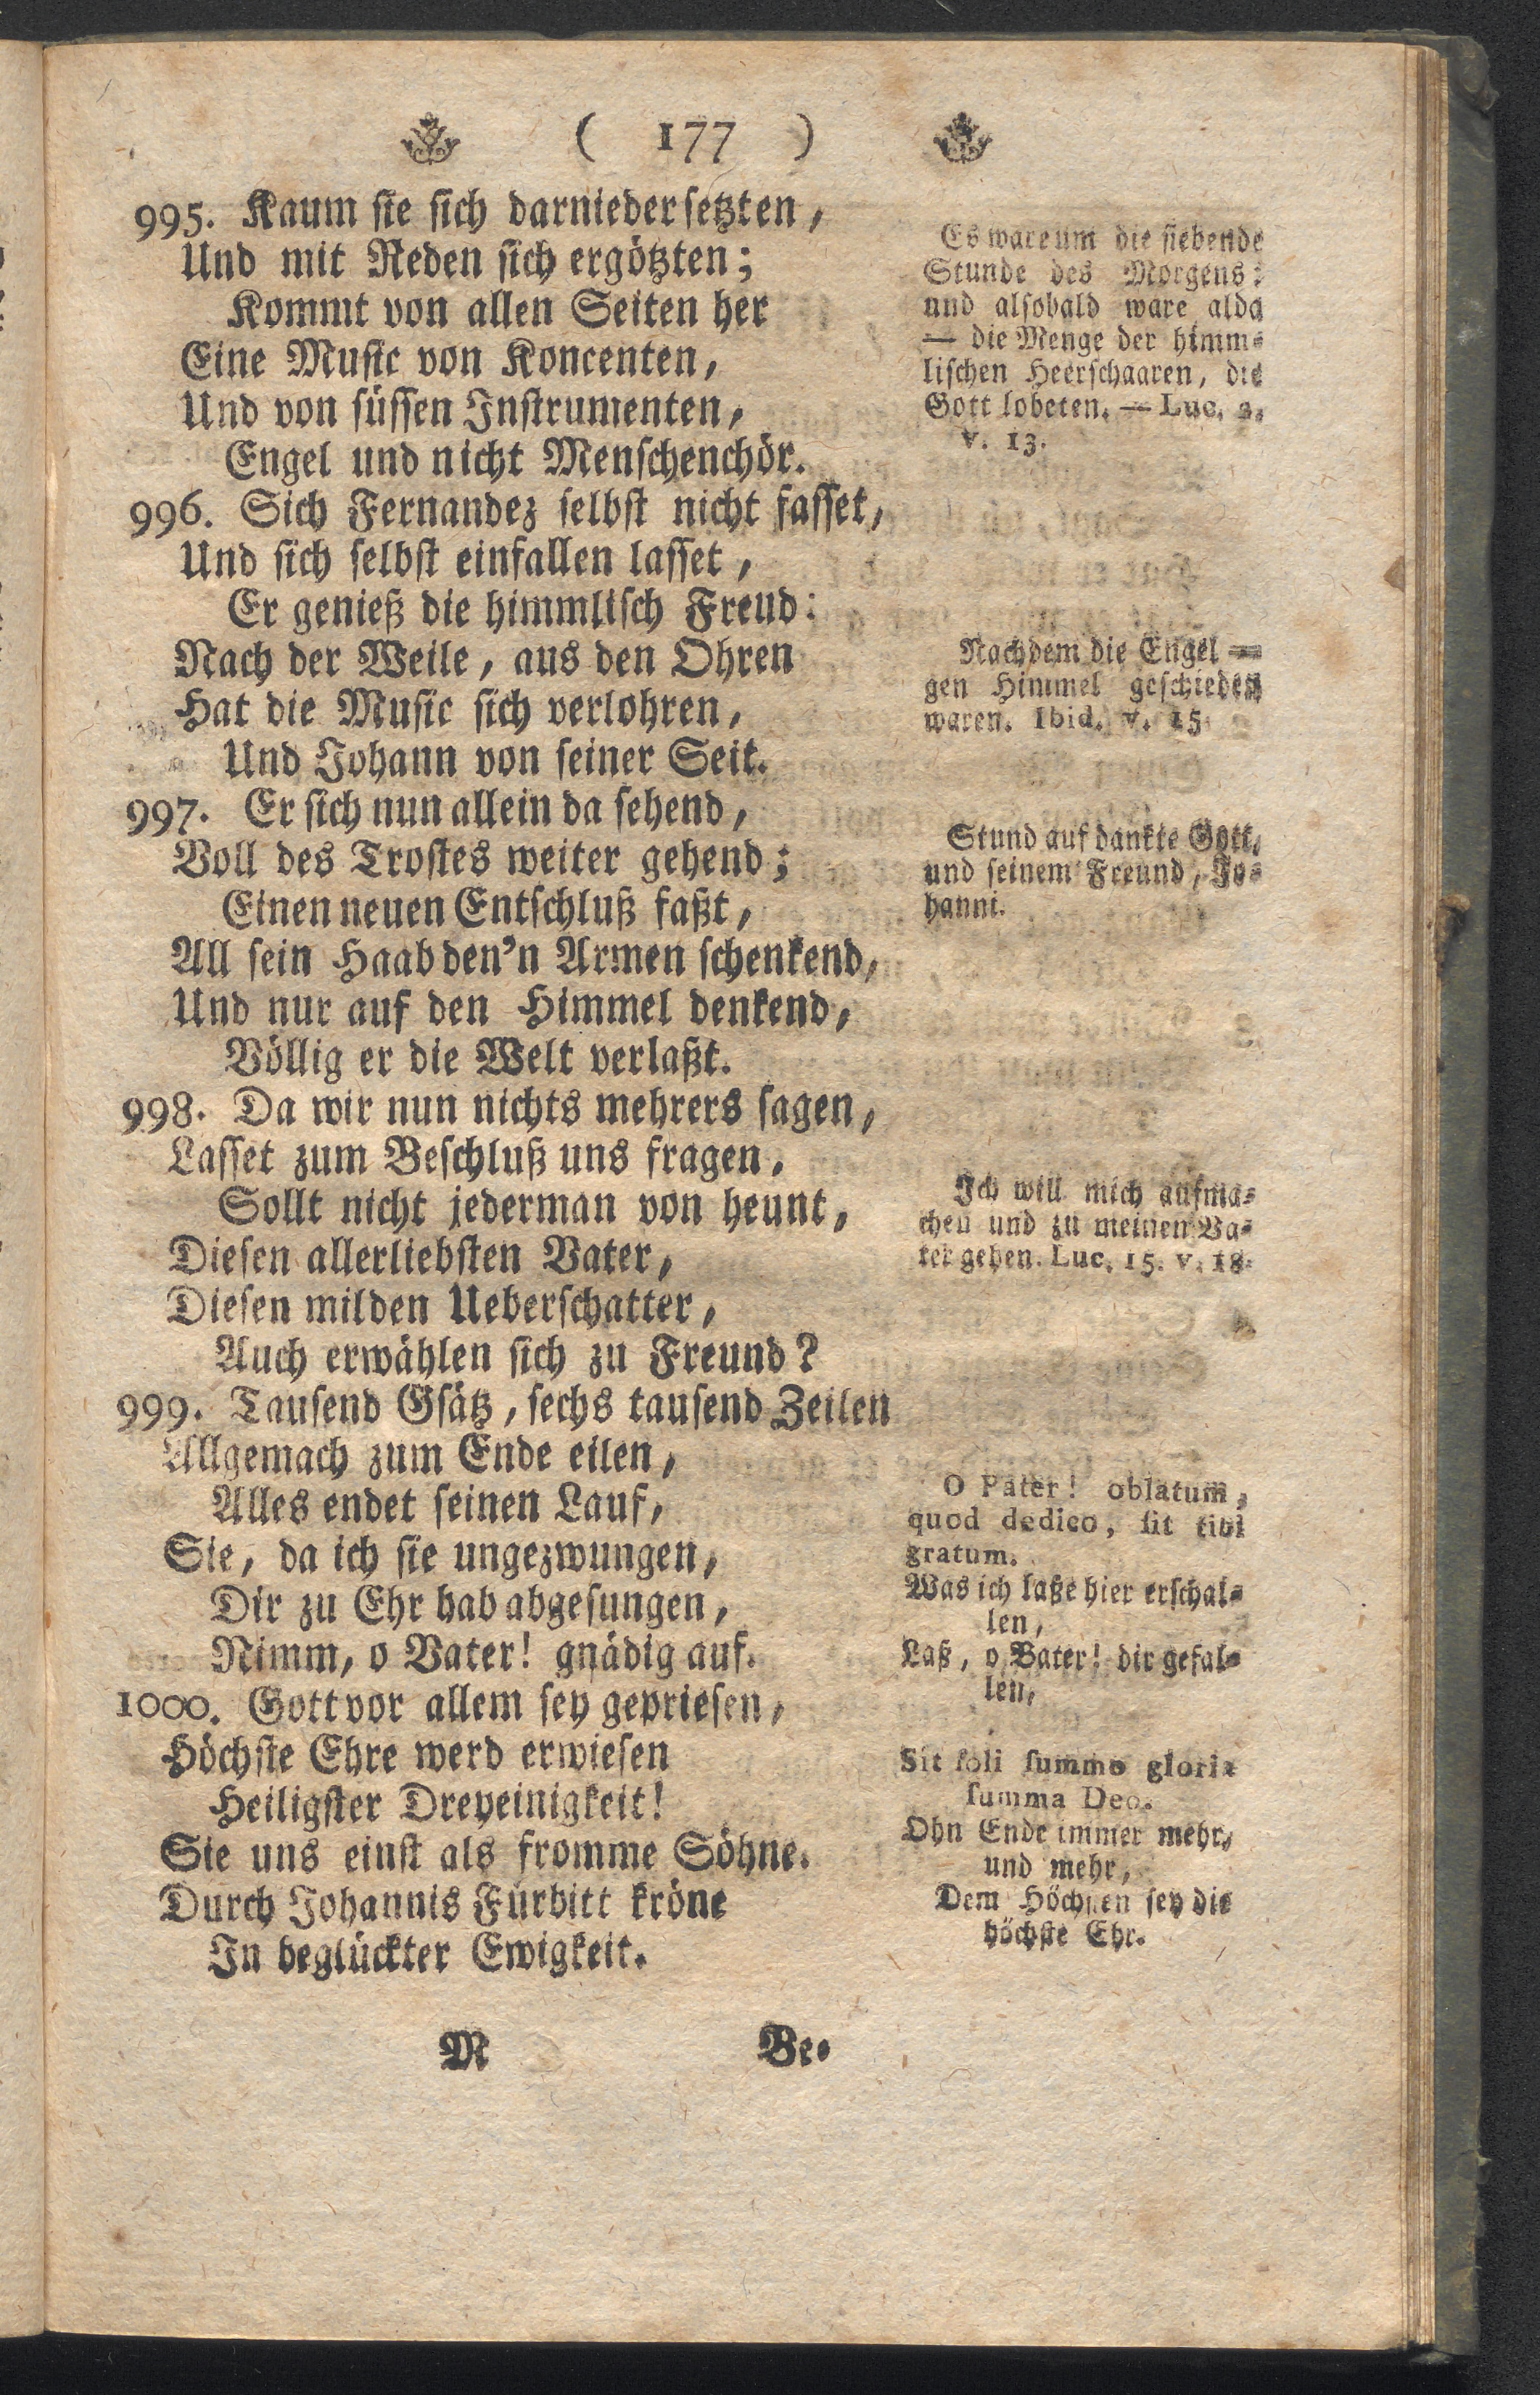 ( 177 )
995. Kaum sie sich darniedersetzten,
Und mit Reden sich ergötzten;
Kommt von allen Seiten her
Eine Music von Koncenten,
Und von süssen Instrumenten,
Engel und nicht Menschenchör.
996. Sich Fernandez selbst nicht fasset,
Und sich selbst einfallen lasset,
Er genieß die himmlisch Freud:
Nach der Weile, aus den Ohren
Hat die Music sich verlohren,
Und Johann von seiner Seit.
997. Er sich nun allein da sehend,
Voll des Trostes weiter gehend;
Einen neuen Entschluß faßt,
All sein Haab den'n Armen schenkend,
Und nur auf den Himmel denkend,
Völlig er die Welt verlaßt.
998. Da wir nun nichts mehrers sagen,
Lasset zum Beschluß uns fragen,
Sollt nicht jederman von heunt,
Diesen allerliebsten Vater,
Diesen milden Ueberschatter,
Auch erwählen sich zu Freund?
999. Tausend Gsätz, sechs tausend Zeilen
Allgemach zum Ende eilen,
Alles endet seinen Lauf,
Sie, da ich sie ungezwungen,
Dir zu Ehr hab abgesungen,
Nimm, o Vater! gnädig auf.
1000. Gott vor allem sey gepriesen,
Höchste Ehre werd erwiesen
Heiligster Dreyeinigkeit!
Sie uns einst als fromme Söhne.
Durch Johannis Fürbitt kröne
In beglückter Ewigkeit.
Es ware um die siebende
Stunde des Morgens:
und alsobald ware alda
— die Menge der himm-
lischen Heerschaaren, die
Gott lobeten. — Luc. 2.
v. 13.
Nachdem die Engel —
gen Himmel geschieden
waren. Ibid. v. 15.
Stund auf dankte Gott,
und seinem Freund, Jo-
hanni.
Ich will mich aufma-
chen und zu meinen Va-
ter gehen. Luc. 15. v. 18.
O Pater! oblatum,
quod dedico, sit tibi
gratum.
Was ich laße hier erschal-
len,
Laß, o Vater! dir gefal-
len,
Sit soli summo gloria
summa Deo.
Ohn Ende immer mehr,
und mehr,
Dem Höchsten sey die
höchste Ehr.
M Be-